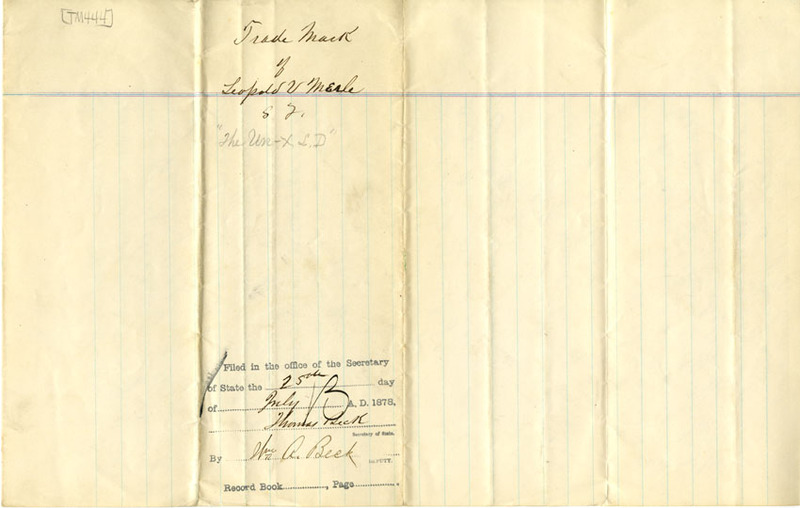 [TM444]
Trade Mark
of
Leopold V Merle
S F.
"The Un-X L D"
Filed in the office of the Secretary
of State the 25th day
of July A. D. 1878,
Thomas Beck
Secretary of State.
By Wm A. Beck
DEPUTY.
Record Book , Page .